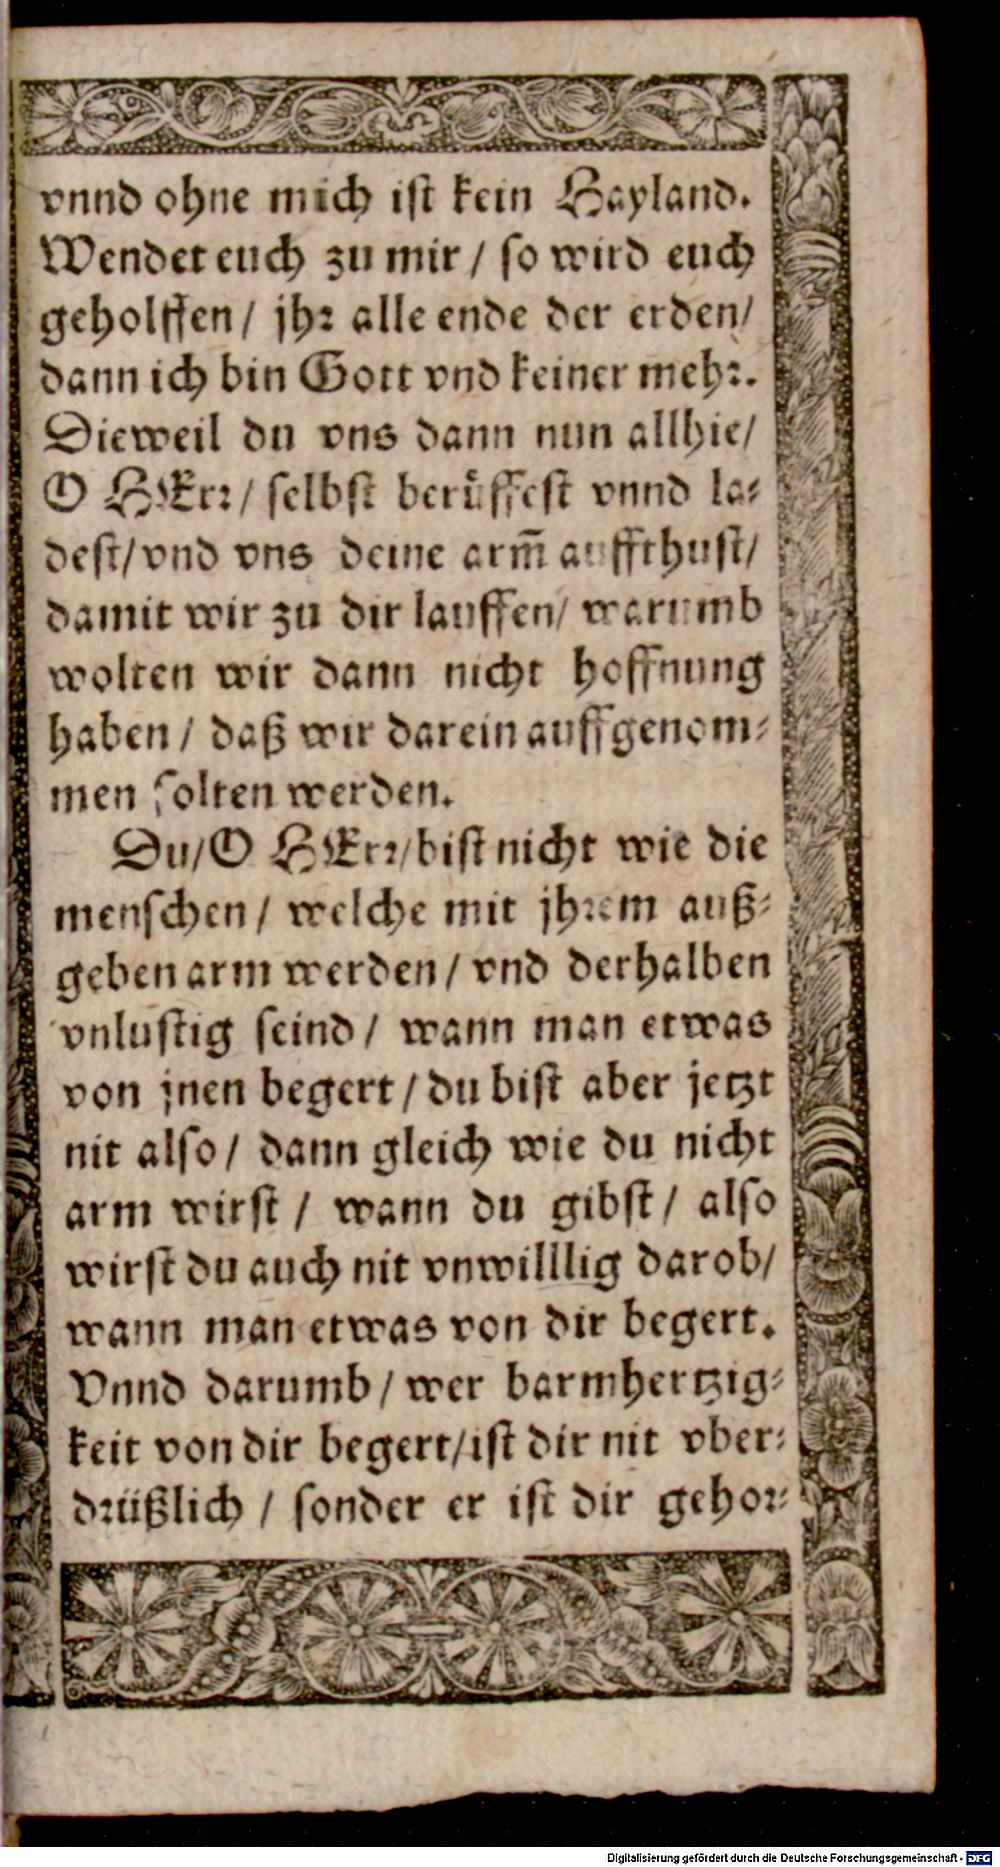 vnnd ohne mich ist kein Hayland.
Wendet euch zu mir / so wird euch
geholffen / jhr alle ende der erden /
dann ich bin Gott vnd keiner mehr.
Dieweil du vns dann nun allhie /
O HErr / selbst berůffest vnnd la⸗
dest / vnd vns deine arm̃ auffthust /
damit wir zu dir lauffen / warumb
wolten wir dann nicht hoffnung
haben / daß wir darein auffgenom⸗
men solten werden.
Du / O HErr / bist nicht wie die
menschen / welche mit jhrem auß⸗
geben arm werden / vnd derhalben
vnlustig seind / wann man etwas
von jnen begert / du bist aber jetzt
nit also / dann gleich wie du nicht
arm wirst / wann du gibst / also
wirst du auch nit vnwilllig darob /
wann man etwas von dir begert.
Vnnd darumb / wer barmhertzig⸗
keit von dir begert / ist dir nit vber⸗
drüßlich / sonder er ist dir gehor⸗
Digitalisierung gefördert durch die Deutsche Forschungsgemeinschaft - DFG